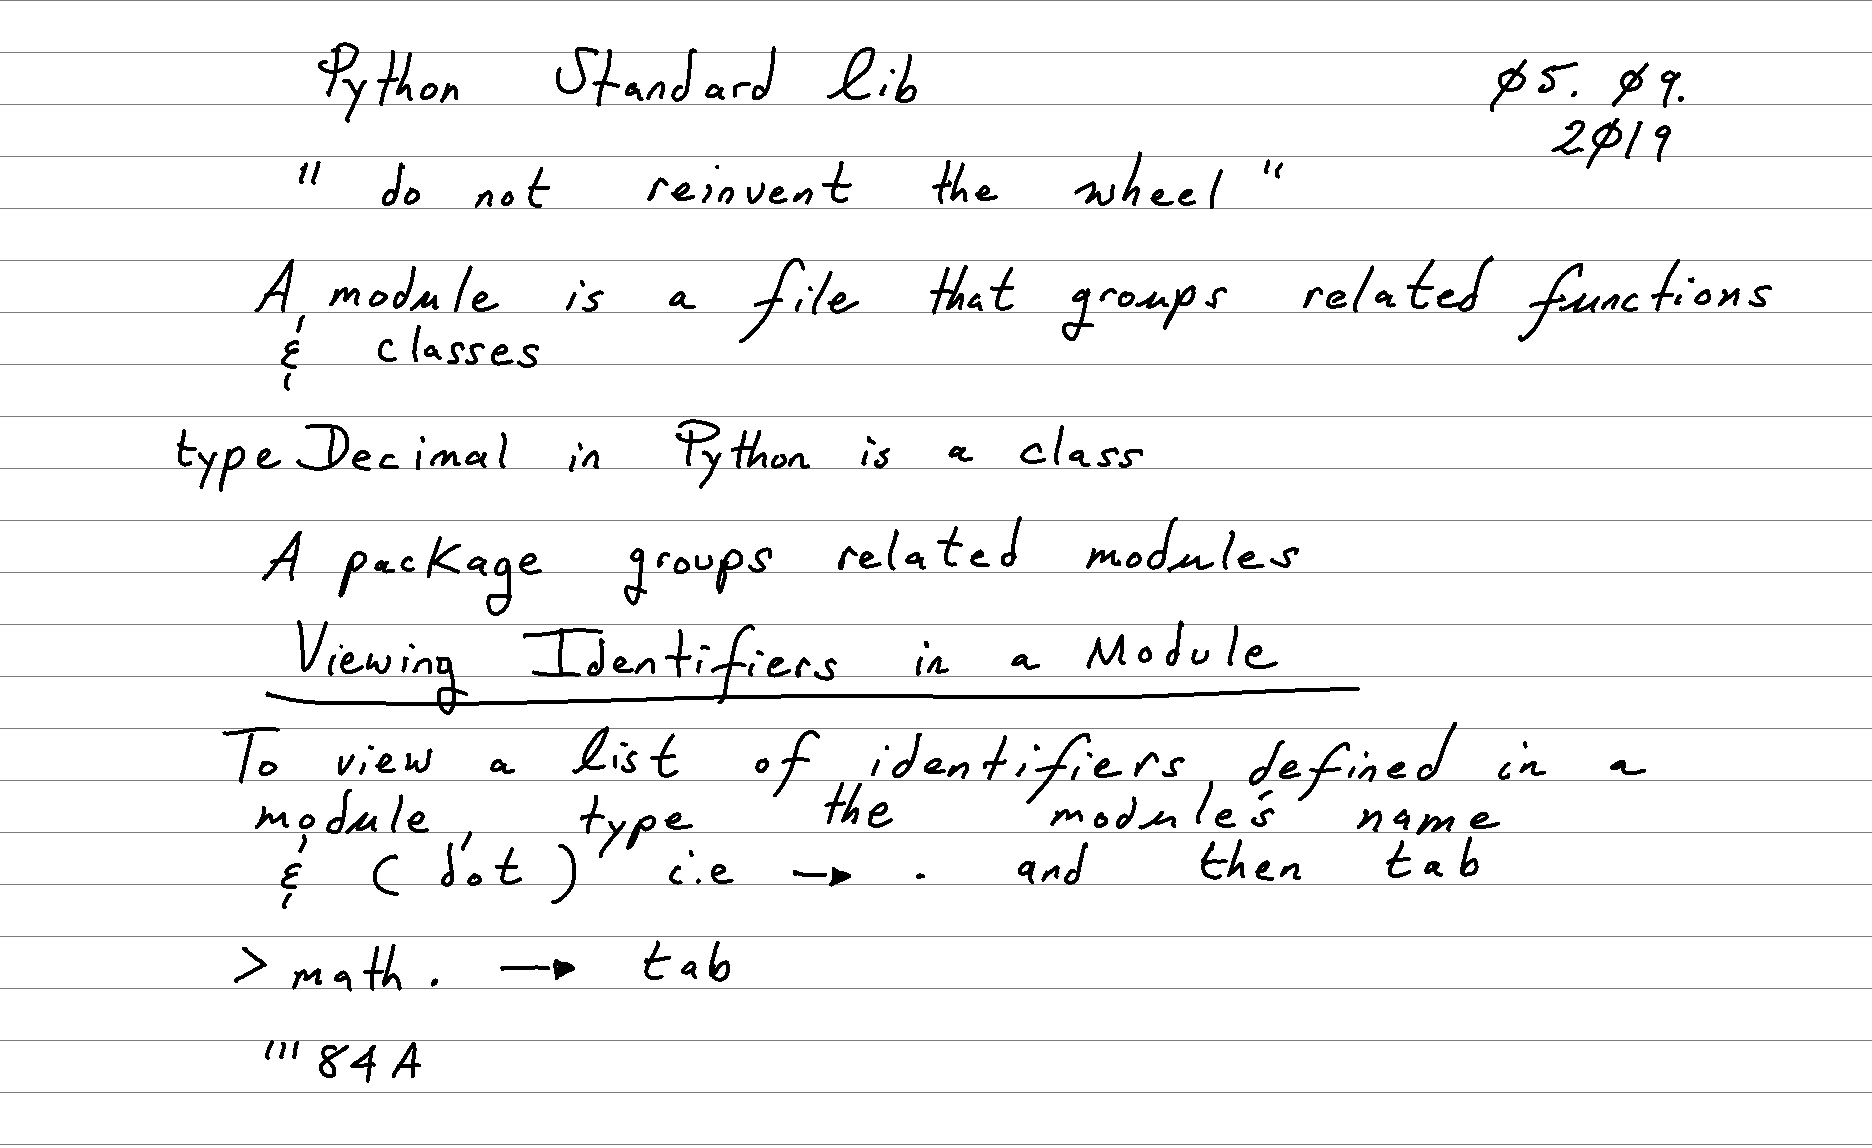 Python Standard lib
05. 09.
2019
" do not reinvent the wheel "
A module is a file that groups related functions
& classes
type Decimal in Python is a class
A package groups related modules
Viewing Identifiers in a Module
To view a list of identifiers defined in a
module, type the module's name
& (dot) i.e → . and then tab
> math. → tab
''' 84 A